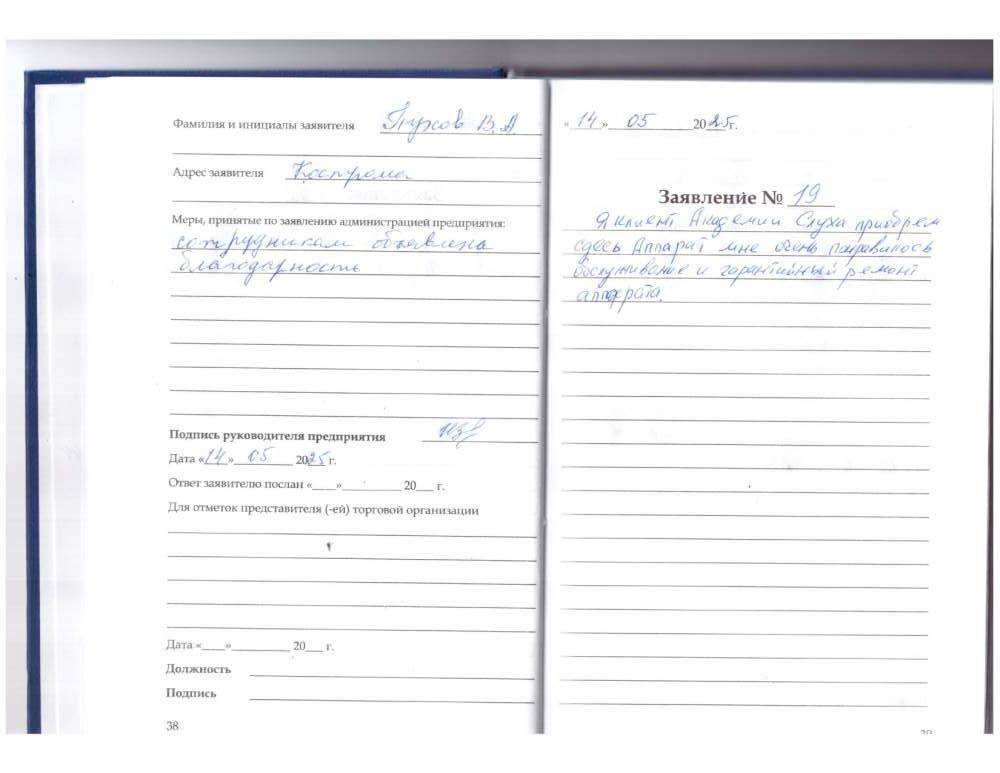 Фамилия и инициалы заявителя Пухов В.А
Адрес заявителя Кострома
Меры, принятые по заявлению администрацией предприятия:
сотрудникам объявлена
благодарность
Подпись руководителя предприятия
Дата «14» 05 2025 г.
Ответ заявителю послан «___»_________ 20___ г.
Для отметок представителя (-ей) торговой организации
Дата «___»_________ 20___ г.
Должность
Подпись
38
«14» 05 2025г.
Заявление № 19
Я клиент Академии Слуха приобрем
сдесь Аппарат мне очень понравилось
обслуживание и гарантийный ремонт
аппарата.